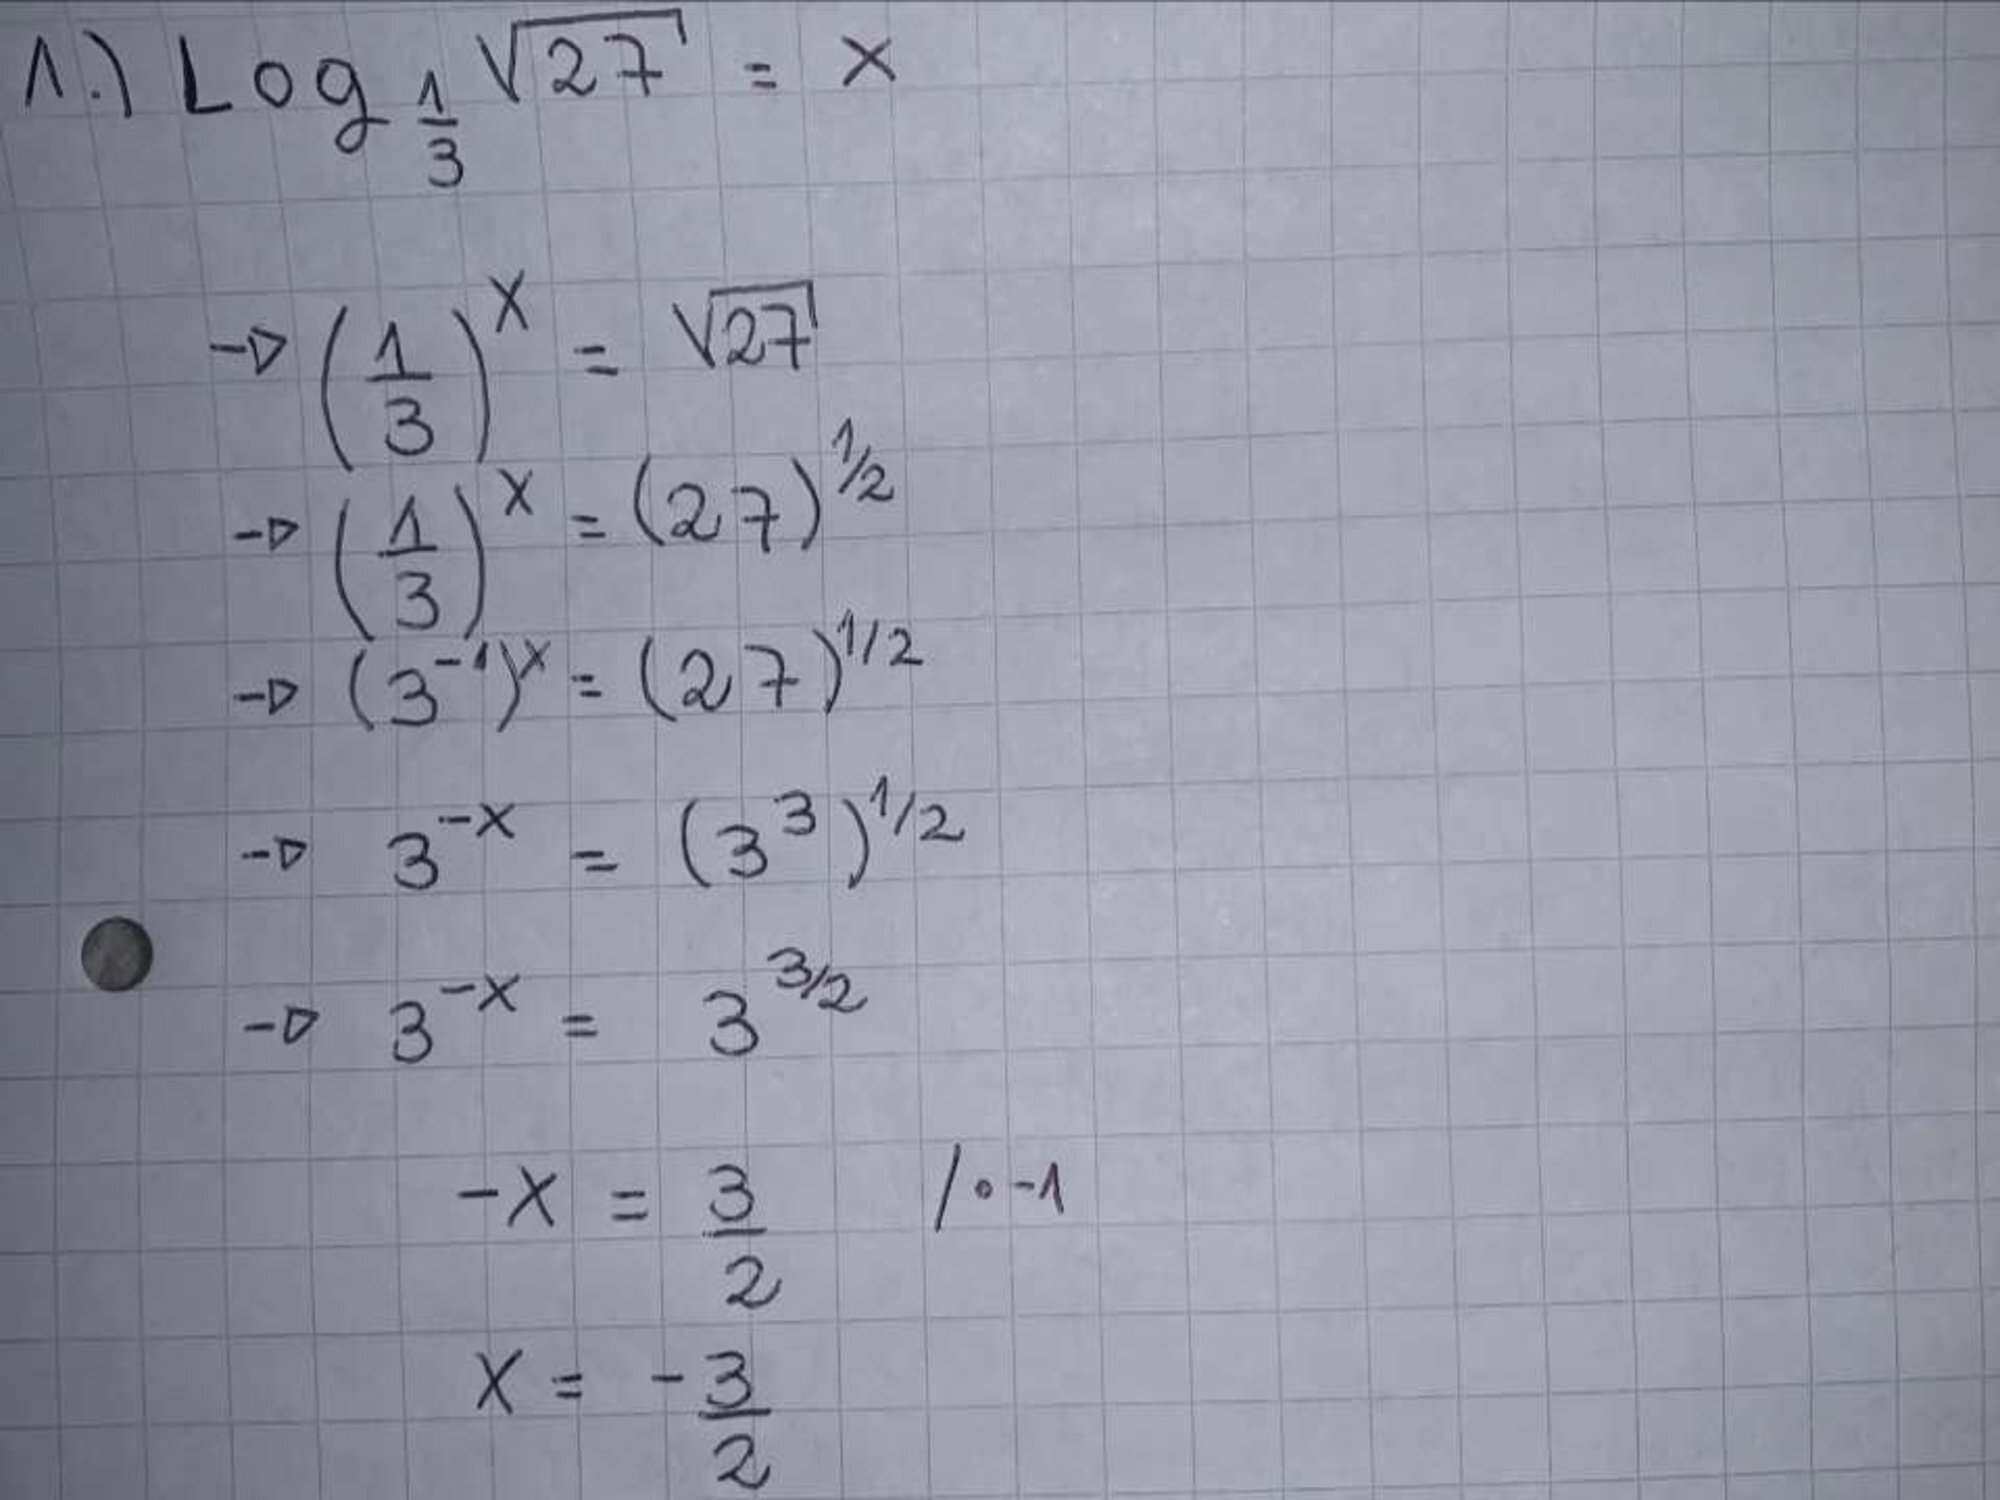 1.) Log_{1/3} √27 = x
→ (1/3)^x = √27
→ (1/3)^x = (27)^{1/2}
→ (3^{-1})^x = (27)^{1/2}
→ 3^{-x} = (3^3)^{1/2}
→ 3^{-x} = 3^{3/2}
-x = 3/2 /∘-1
x = -3/2